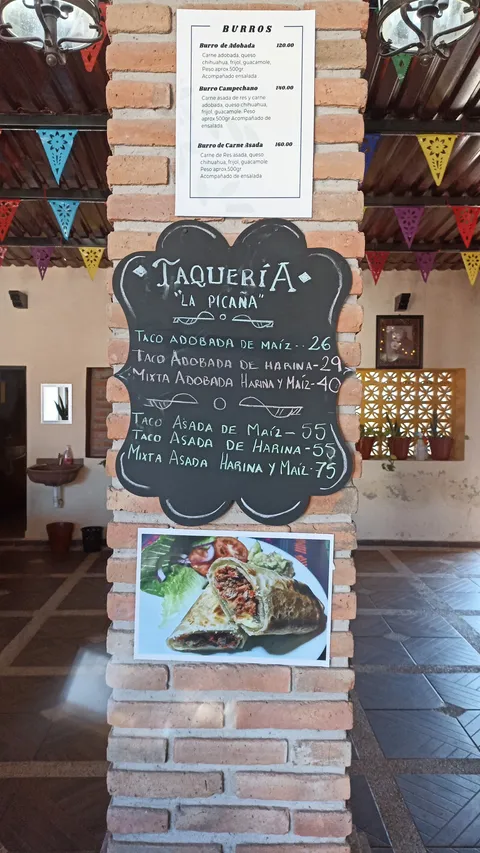 BURROS
Burro de Adobada 120.00
Carne adobada, queso
chihuahua, frijol, guacamole,
Peso aprox 500gr
Acompañado ensalada
Burro Campechano 140.00
Carne asada de res y carne
adobada, queso chihuahua,
frijol, guacamole, Peso
aprox 500gr Acompañado de
ensalada
Burro de Carne Asada 160.00
Carne de Res asada, queso
chihuahua, frijol, guacamole,
Peso aprox 500gr
Acompañado de ensalada
TAQUERÍA
"LA PICAÑA"
TACO ADOBADA DE MAÍZ.. 26
TACO ADOBADA DE HARINA-29
MIXTA ADOBADA HARINA Y MAÍZ-40
TACO ASADA DE MAÍZ-55
TACO ASADA DE HARINA-55
MIXTA ASADA HARINA Y MAÍZ.75